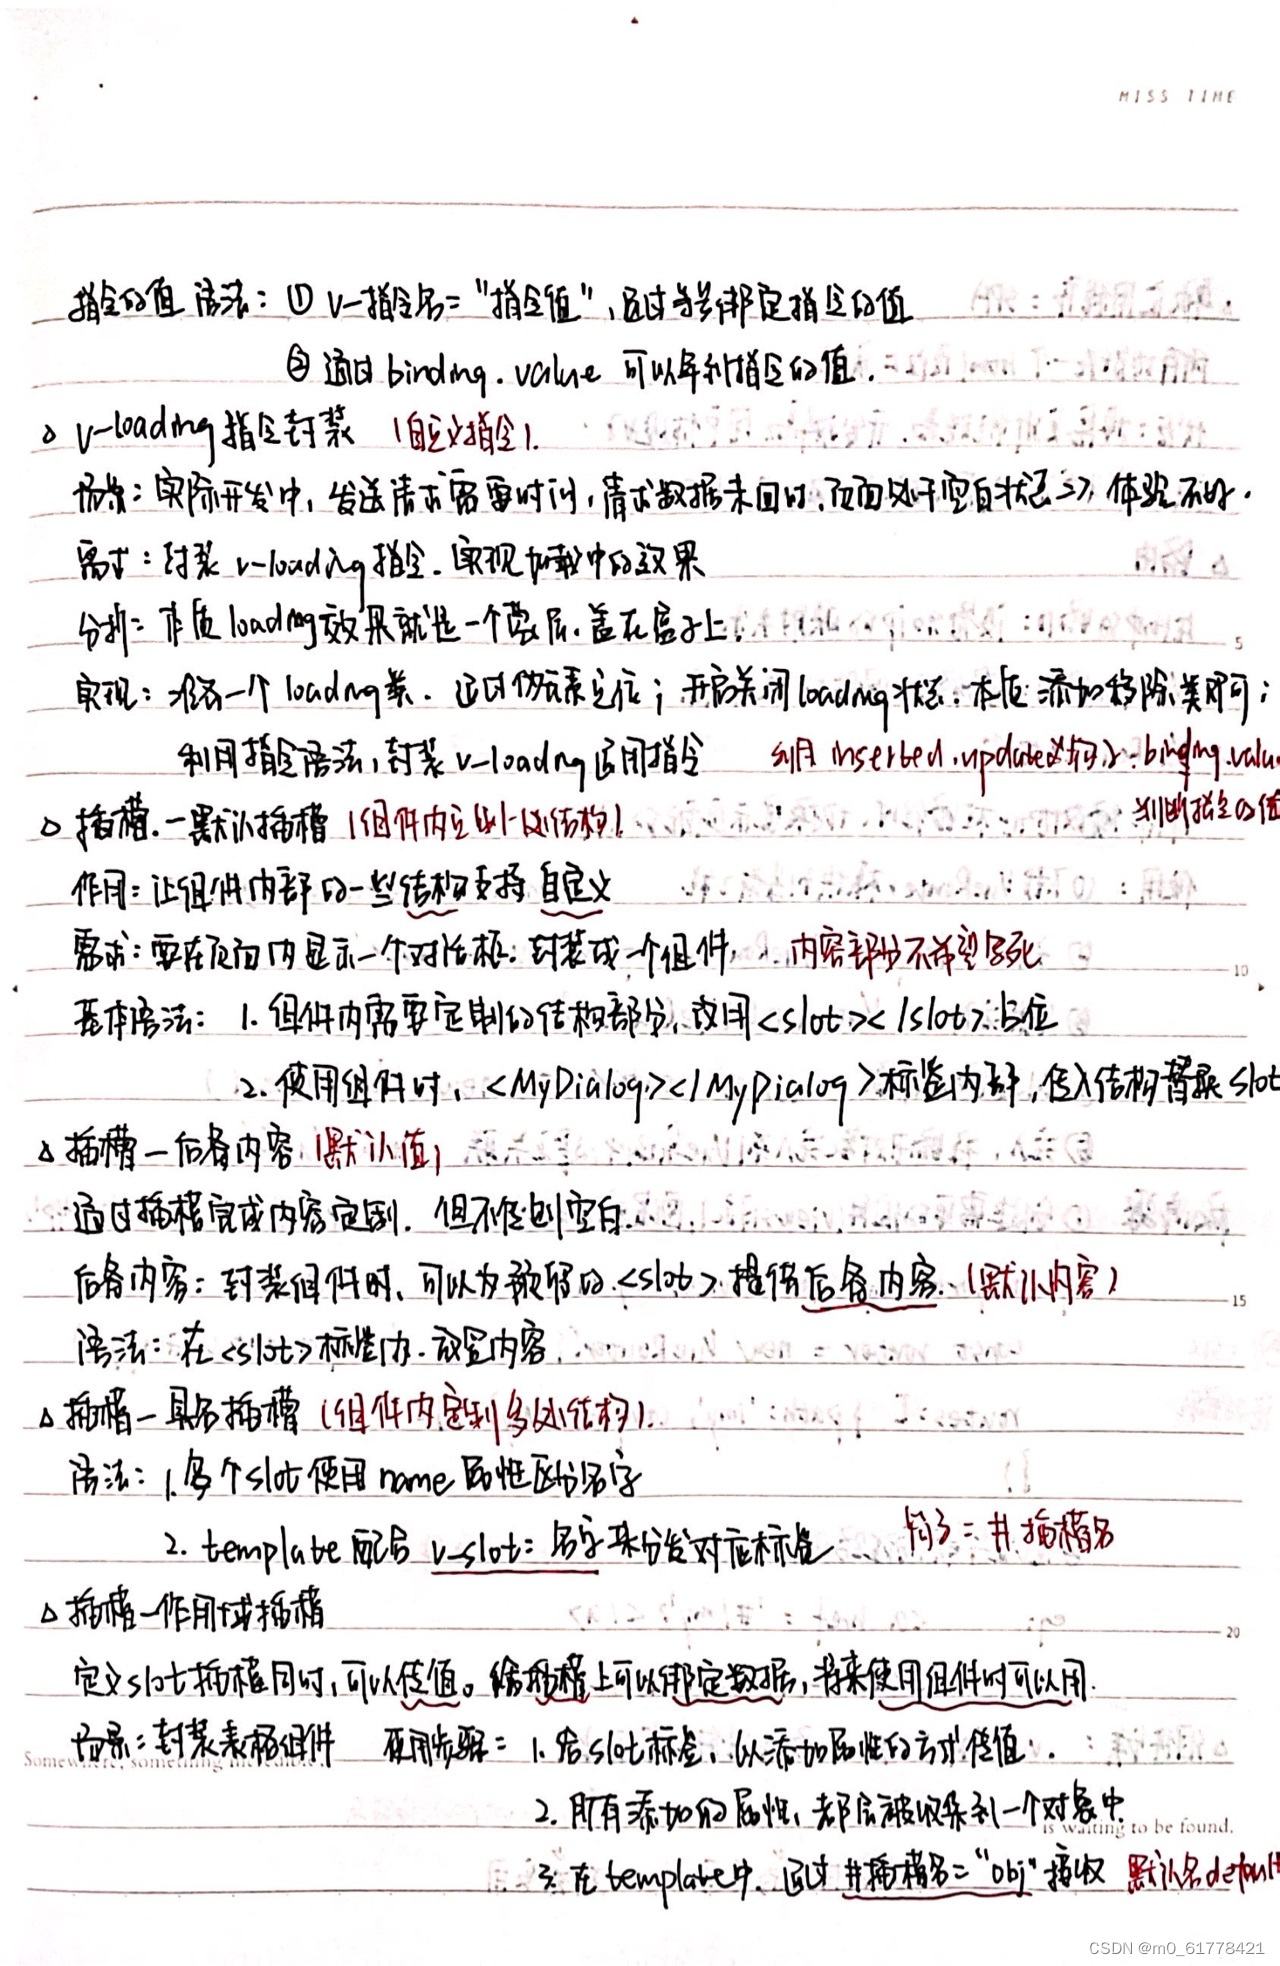 MISS TIME
指令的值 语法：① v-指令名="指令值"，通过等号绑定指令的值
② 通过 binding.value 可以拿到指令的值.
△ v-loading 指令封装 (自定义指令).
场景：实际开发中，发送请求需要时间，请求数据未回时，页面处于空白状态 => 体验不好.
需求：封装 v-loading 指令. 实现加载中的效果
分析：本质 loading 效果就是一个蒙层. 盖在盒子上
实现：准备一个 loading 类. 通过伪元素定位；开启关闭 loading 状态. 本质 添加移除类即可；
利用指令语法，封装 v-loading 通用指令 利用 inserted.update binding.value
判断指令的值
△ 插槽.—默认插槽 (组件内定制一处结构).
作用：让组件内部的一些结构支持自定义
需求：要在页面内显示一个对话框. 封装成一个组件. 内容部分不希望写死
基本语法： 1. 组件内需要定制的结构部分, 改用<slot></slot>占位
2. 使用组件时, <MyDialog></MyDialog>标签内部, 传入结构替换 slot
△ 插槽—后备内容 (默认值)
通过插槽完成内容定制. 但不传则空白.
后备内容：封装组件时, 可以为预留的<slot>提供后备内容. (默认内容)
语法：在<slot>标签内. 放置内容.
△ 插槽—具名插槽 (组件内定制多处结构).
语法： 1. 多个slot使用name属性区分名字
2. template 配合 v-slot：名字来分发对应标签 简写 = #插槽名
△ 插槽—作用域插槽
定义slot插槽同时，可以传值。给插槽上可以绑定数据，将来使用组件时可以用.
场景：封装表格组件 使用步骤： 1. 给slot标签, 以添加属性的方式传值.
Somewhere, something incredible
2. 所有添加的属性, 都会被收集到一个对象中
is waiting to be found.
3. 在 template中. 通过 #插槽名="obj"接收 默认名default
5
10
15
20
CSDN @m0_61778421